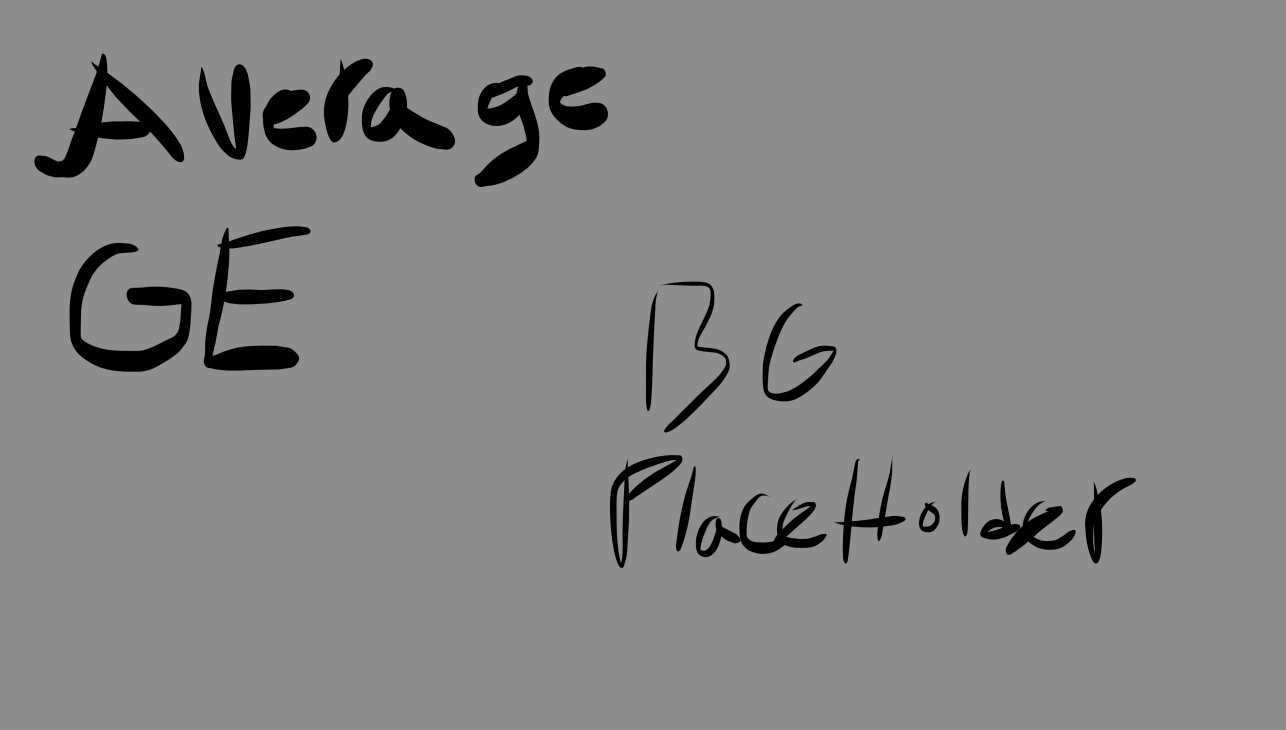 Average
GE
BG
PlaceHolder